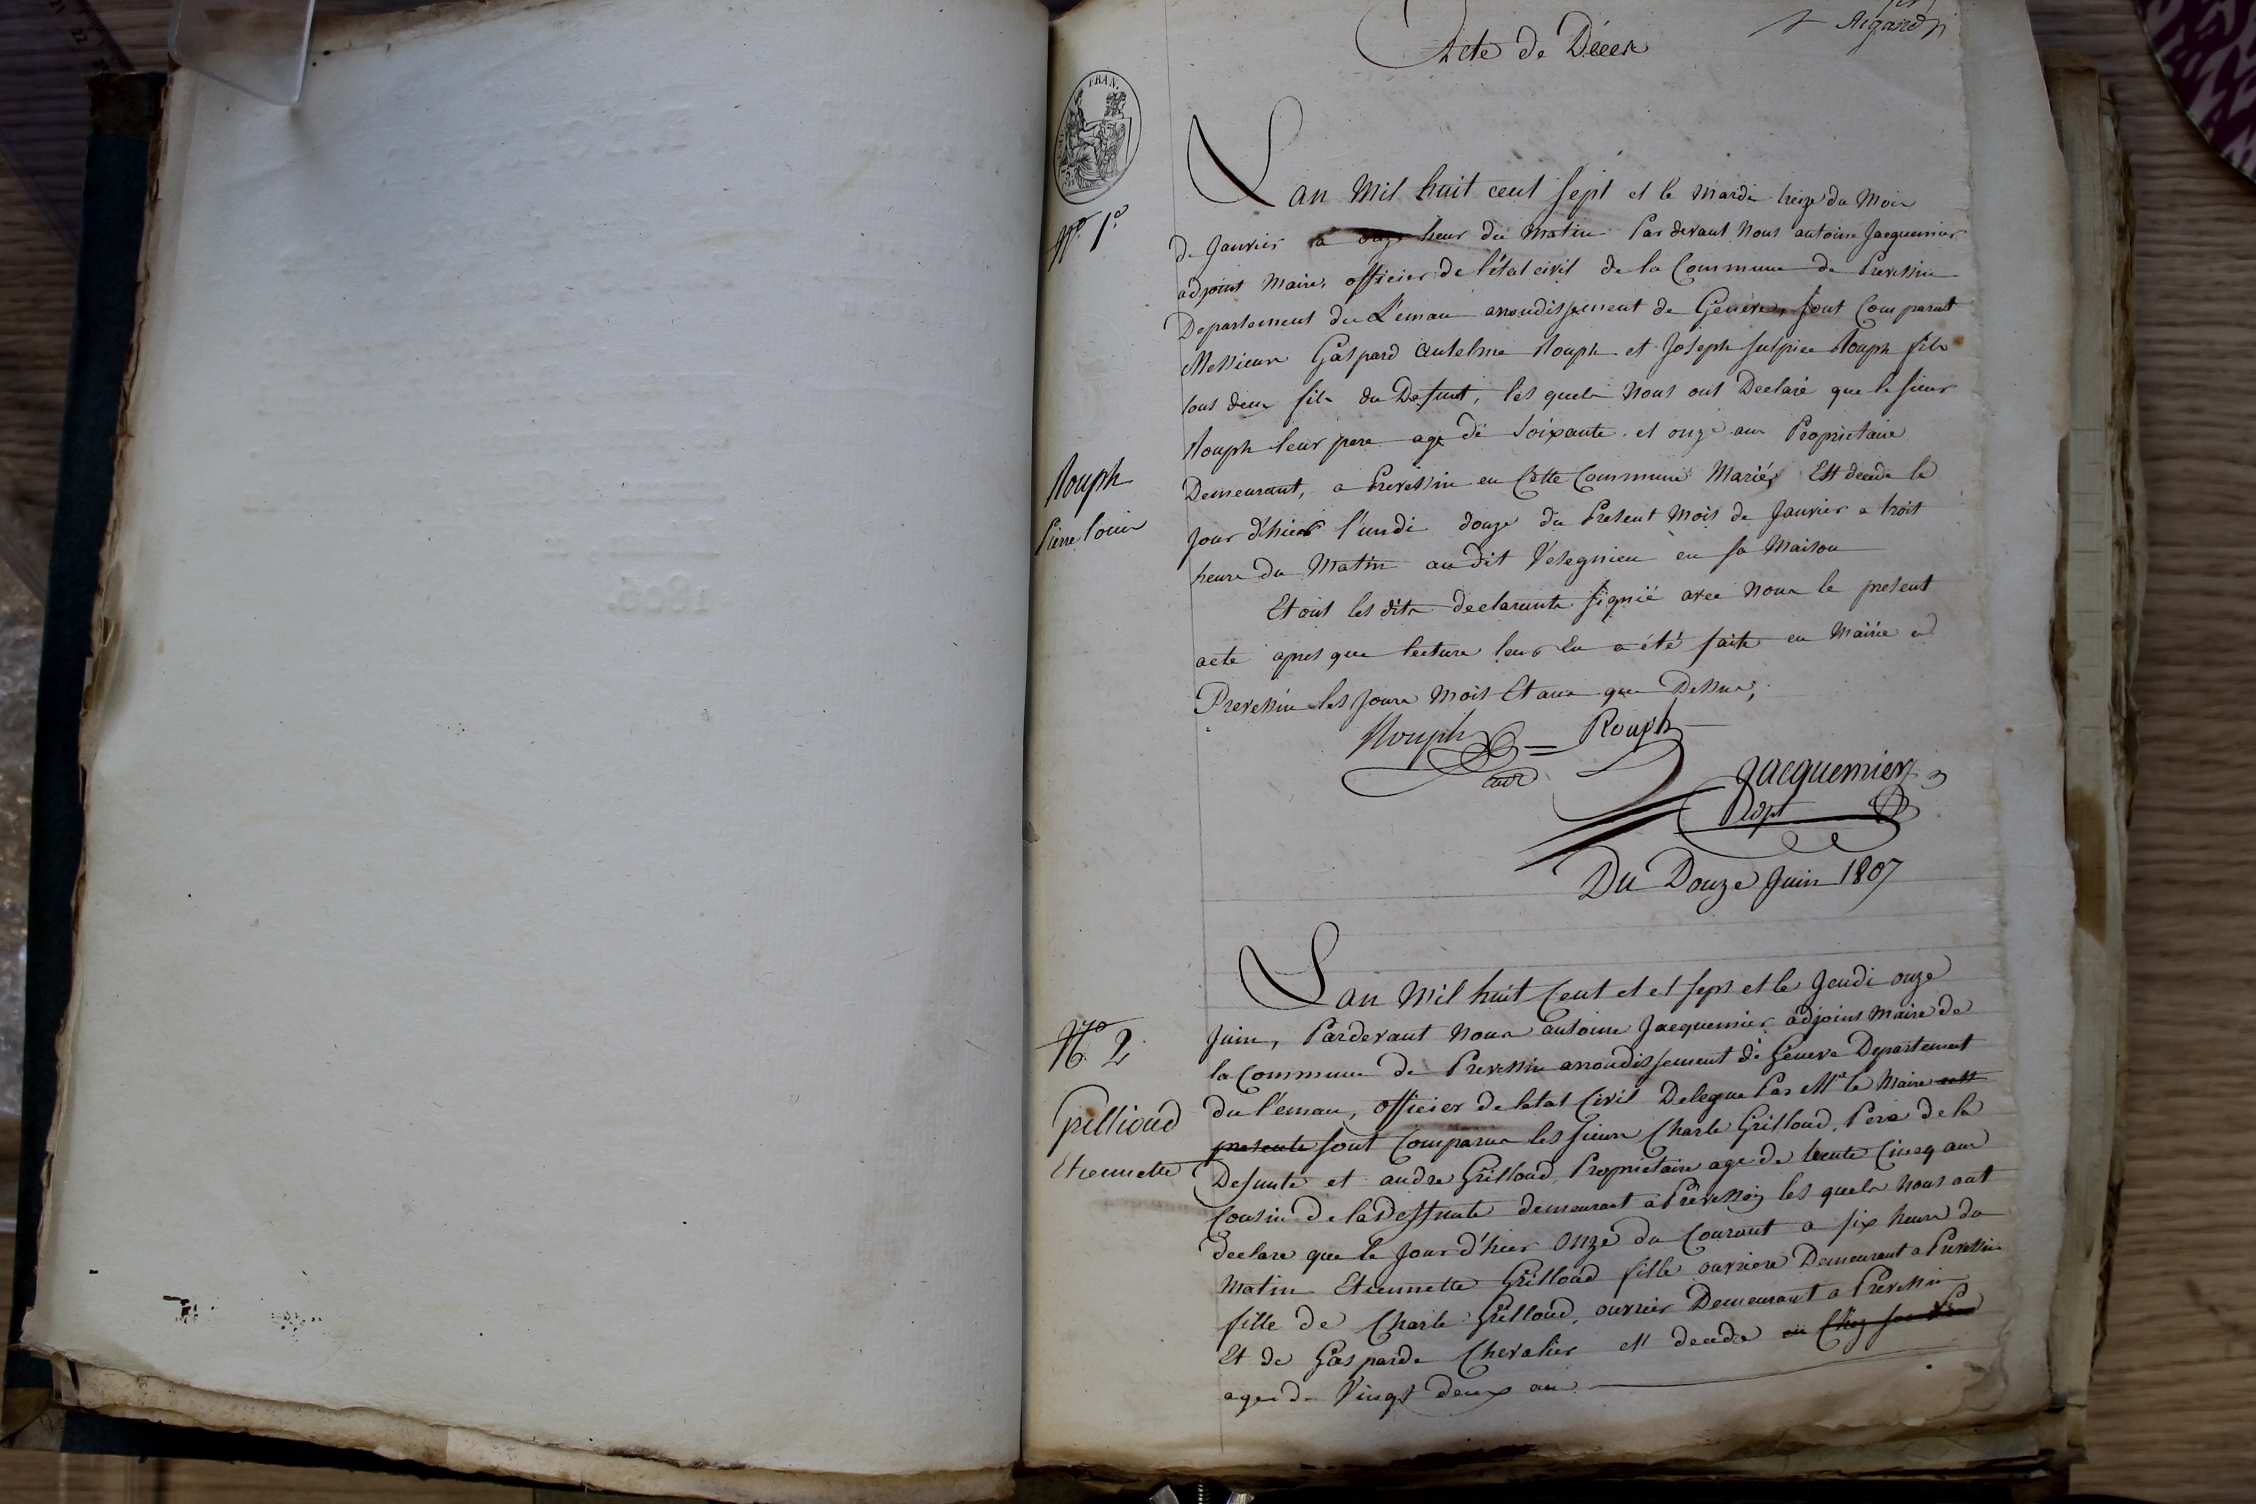 Acte de Décès
Rigard
FRAN.
L'an Mil huit cent sept et le Mardi treize du Mois
N.º 1º
de Janvier a onze heur du Matin Par devant Nous antoine Jacquemier
adjoint Maire, officier de l'état civil de la Commune de Prevessin
Departement du Léman arrondissement de Genève, sont Comparut
Messieurs Gaspard Antelme Rouph et Joseph Sulpice Rouph fils
tous deux fils du Defunt, les quels Nous ont Declaré que le sieur
Rouph leur pere agé de Soixante et onze ans Proprietaire
Rouph
Pierre Louis
Demeurant, a Prevessin en Cette Commune Marié, Est decede le
Jour d'hier l'undi douze du Present Mois de Janvier a trois
heure du Matin au dit Vesegnieu en sa Maison
Et ont les dits declarants signié avec Nous le present
acte apres que lecture leur En a été faite en Mairie a
Prevessin les Jours Mois Et ans que Dessus,
Rouph Rouph
cadt
Jacquemier
adjt
Du Douze Juin 1807
L'an Mil huit Cent et et sept et le Jeudi onze
N.º 2
Juin, Pardevant Nous antoine Jacquemier adjoint Maire de
la Commune de Prevessin arrondissement de Geneve Departement
du l'eman, officier de letat Civil Delegue Par Mr le Maire
Grillioud
Etiennette
presente sont Comparus les sieurs Charle Grilloud, Pere de la
Defunte et andre Grilloud, Proprietaire age de trente Cinq ans
Cousin de la Deffunte demeurant a Prevessin les quels Nous ont
declare que le Jour d'hier onze du Courant a six heure du
Matin Etiennette Grilload fille ouvriere Demeurant a Prevessin
fille de Charle Grilloud, ouvrier Demeurant a Prevessin
Et de Gasparde Chevalier est decedee en Chez son
agee de Vingt deux ans